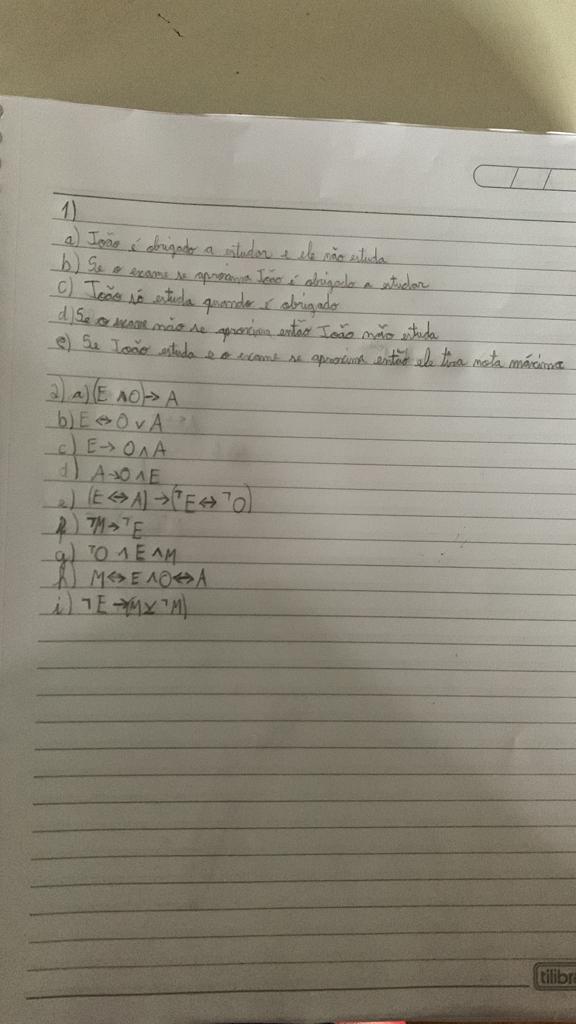 1)
a) João é obrigado a estudar e ele não estuda
b) Se o exame se aproxima João é obrigado a estudar
c) João só estuda quando é obrigado
d) Se o exame não se aproxima então João não estuda
e) Se João estuda e o exame se aproxima então ele tira nota máxima
2) a) (E ∧ O) → A
b) E ↔ O ∨ A
c) E → O ∧ A
d) A → O ∧ E
e) (E ↔ A) → (¬E ↔ ¬O)
f) ¬M → ¬E
g) ¬O ∧ E ∧ M
h) M ↔ E ∧ O ↔ A
i) ¬E → (M ⊻ ¬M)
tilibra